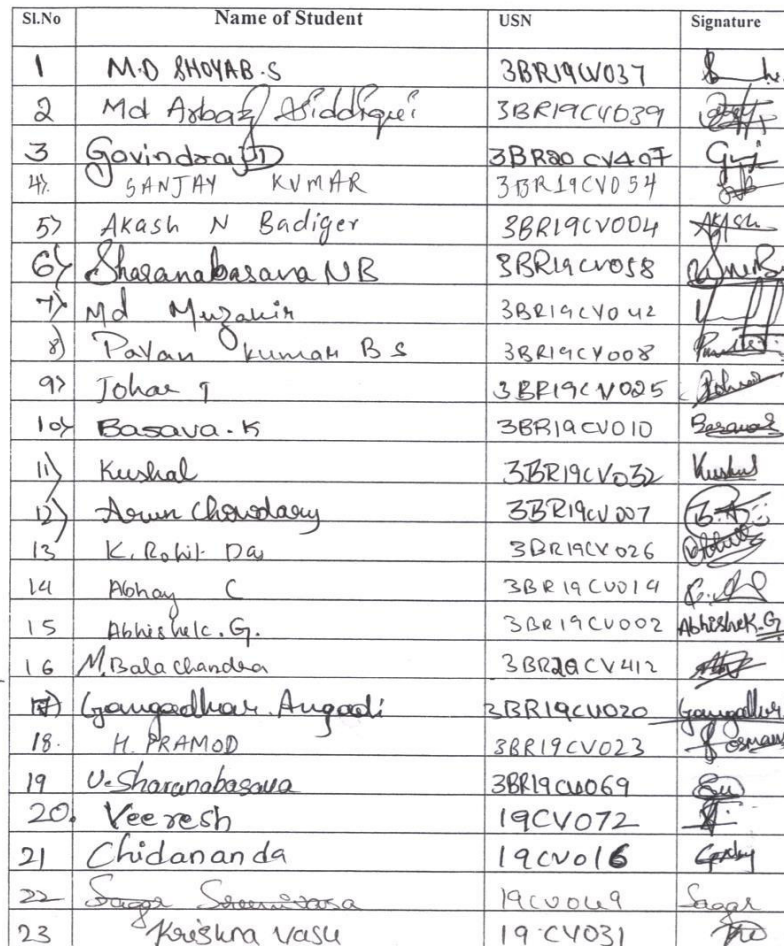 Sl.No Name of Student USN Signature
1 M.D SHOYAB.S 3BR19CV037
2 Md Arbaz Siddiqui 3BR19CV039
3 Govindraj D 3BR20CV407
4) SANJAY KUMAR 3BR19CV054
5) Akash N Badiger 3BR19CV004 Akash
6) Sharanabasava NB 3BR19CV058
7) Md Muzamir 3BR19CV042
8) Pavan Kumar B S 3BR19CV008
9) Johar T 3BR19CV025 Johar
10) Basava.K 3BR19CV010 Basava
11) Kushal 3BR19CV032 Kushal
12) Arun Chowdary 3BR19CV007
13 K. Rohit Das 3BR19CV026
14 Abhay C 3BR19CV014
15 Abhishek.G. 3BR19CV002 Abhishek.G
16 M.Balachandra 3BR20CV412
17) Gangadhar.Angadi 3BR19CV020 Gangadhar
18. H. PRAMOD 3BR19CV023
19 U.Sharanabasava 3BR19CV069
20. Veeresh 19CV072
21 Chidananda 19CV016
22 Sagar 19CV049 Sagar
23 Krishna Vasu 19CV031